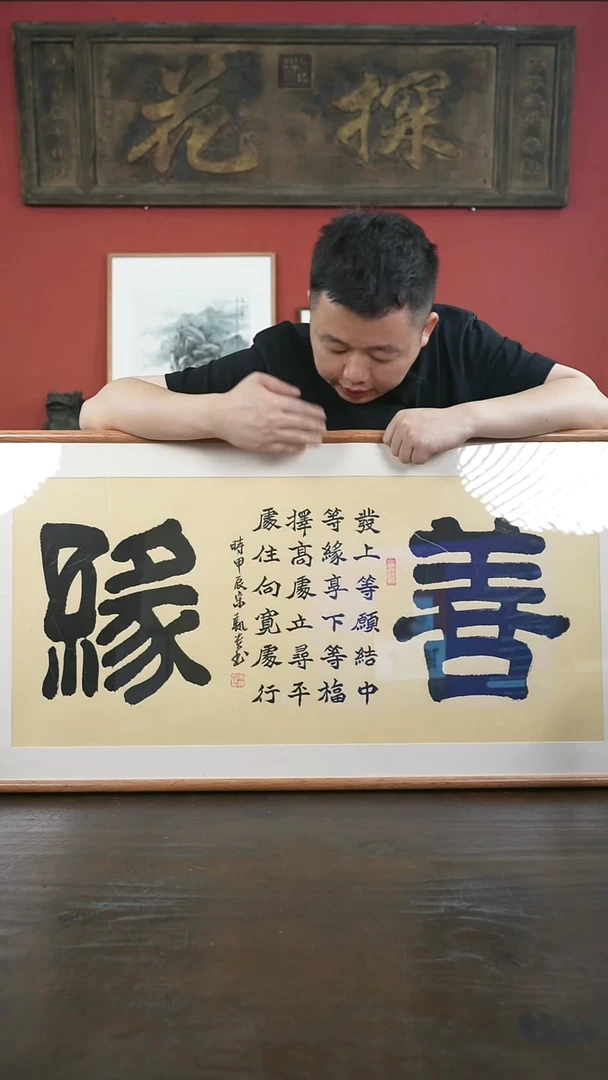 探花
善
發上等願結中
等緣享下等福
擇高處立尋平
處住向寬處行
時甲辰
緣